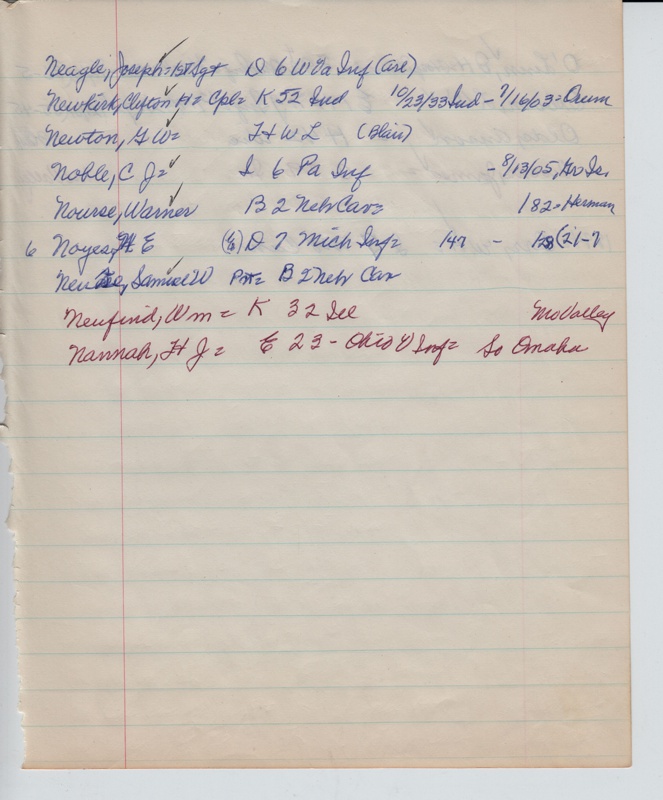 Neagle, Joseph = 1st Sgt D 6 W Va Inf (Carl)
Newkirk, Clayton H = Cpl = K 52 Ind 10/23/33 Ind - 7/16/03 = Orum
Newton, G W = I H W L (Blair)
Noble, C J = I 6 Pa Inf - 8/13/05,
Nourse, Warner B 2 Neb Cav = 182 = Herman
6 Noyes, H E (E) D 7 Mich Inf = 147 - (21-7
Samuel W Pvt = B 2 Neb Cav
Neufind, Wm = K 32 Ill Mo Valley
Nannah, H J = E 23 - Ohio V Inf = So Omaha